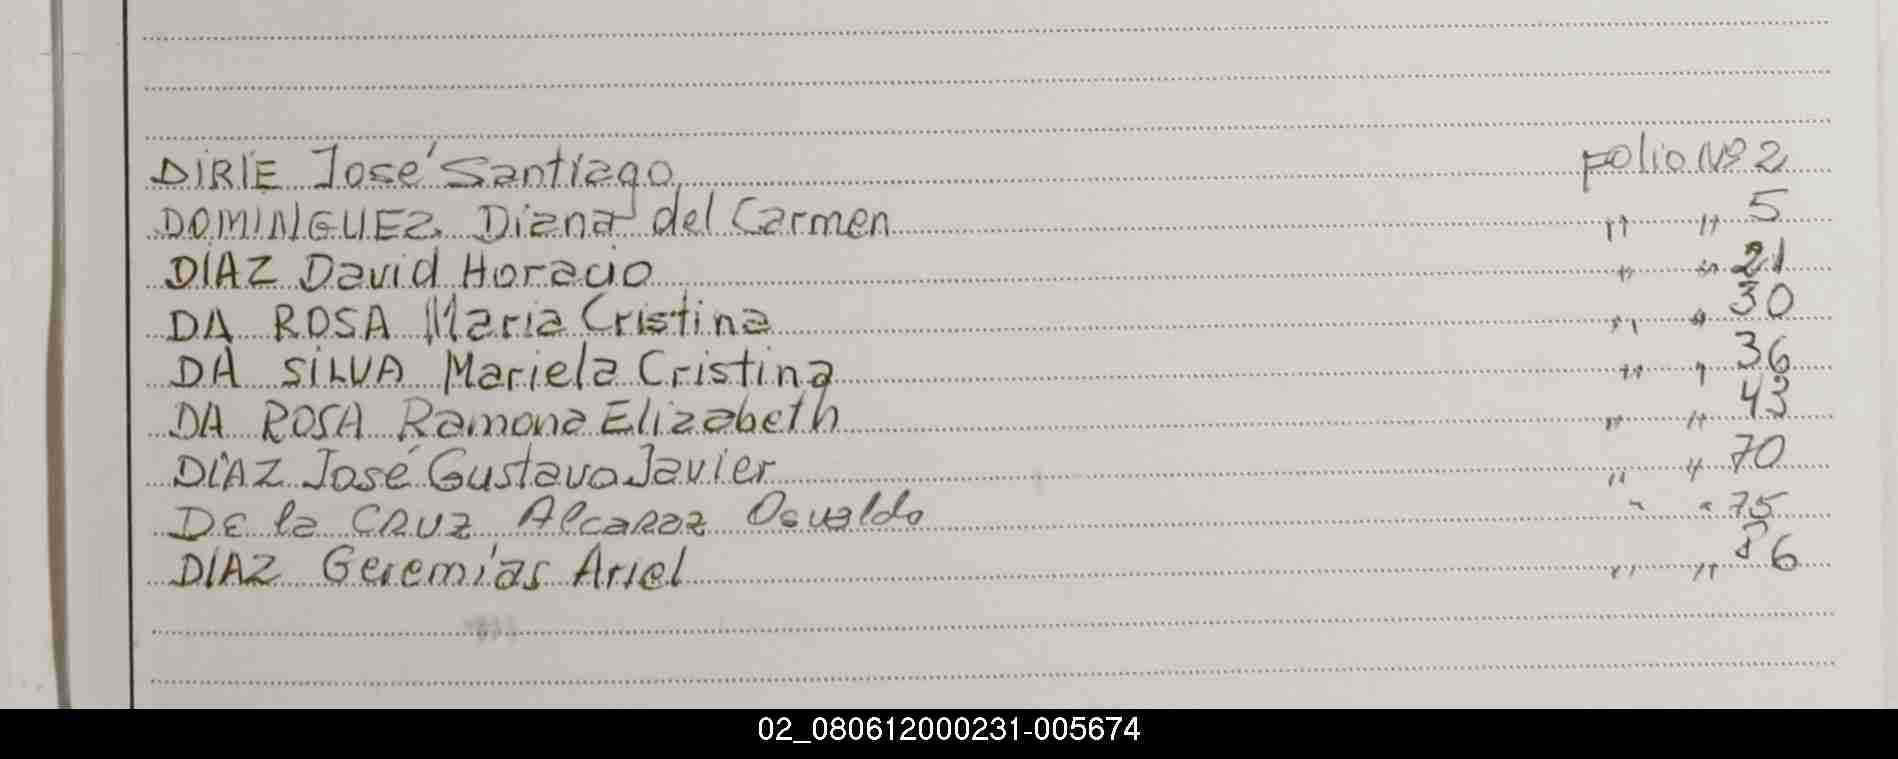 DIRIE José Santiago Folio Nº 2
DOMINGUEZ Diana del Carmen " " 5
DIAZ David Horacio " " 21
DA ROSA Maria Cristina " " 30
DA SILVA Mariela Cristina " " 36
DA ROSA Ramona Elizabeth " " 43
DIAZ José Gustavo Javier " " 70
DE la CRUZ Alcaraz Osvaldo " " 75
DIAZ Geremías Ariel " " 86
02_080612000231-005674